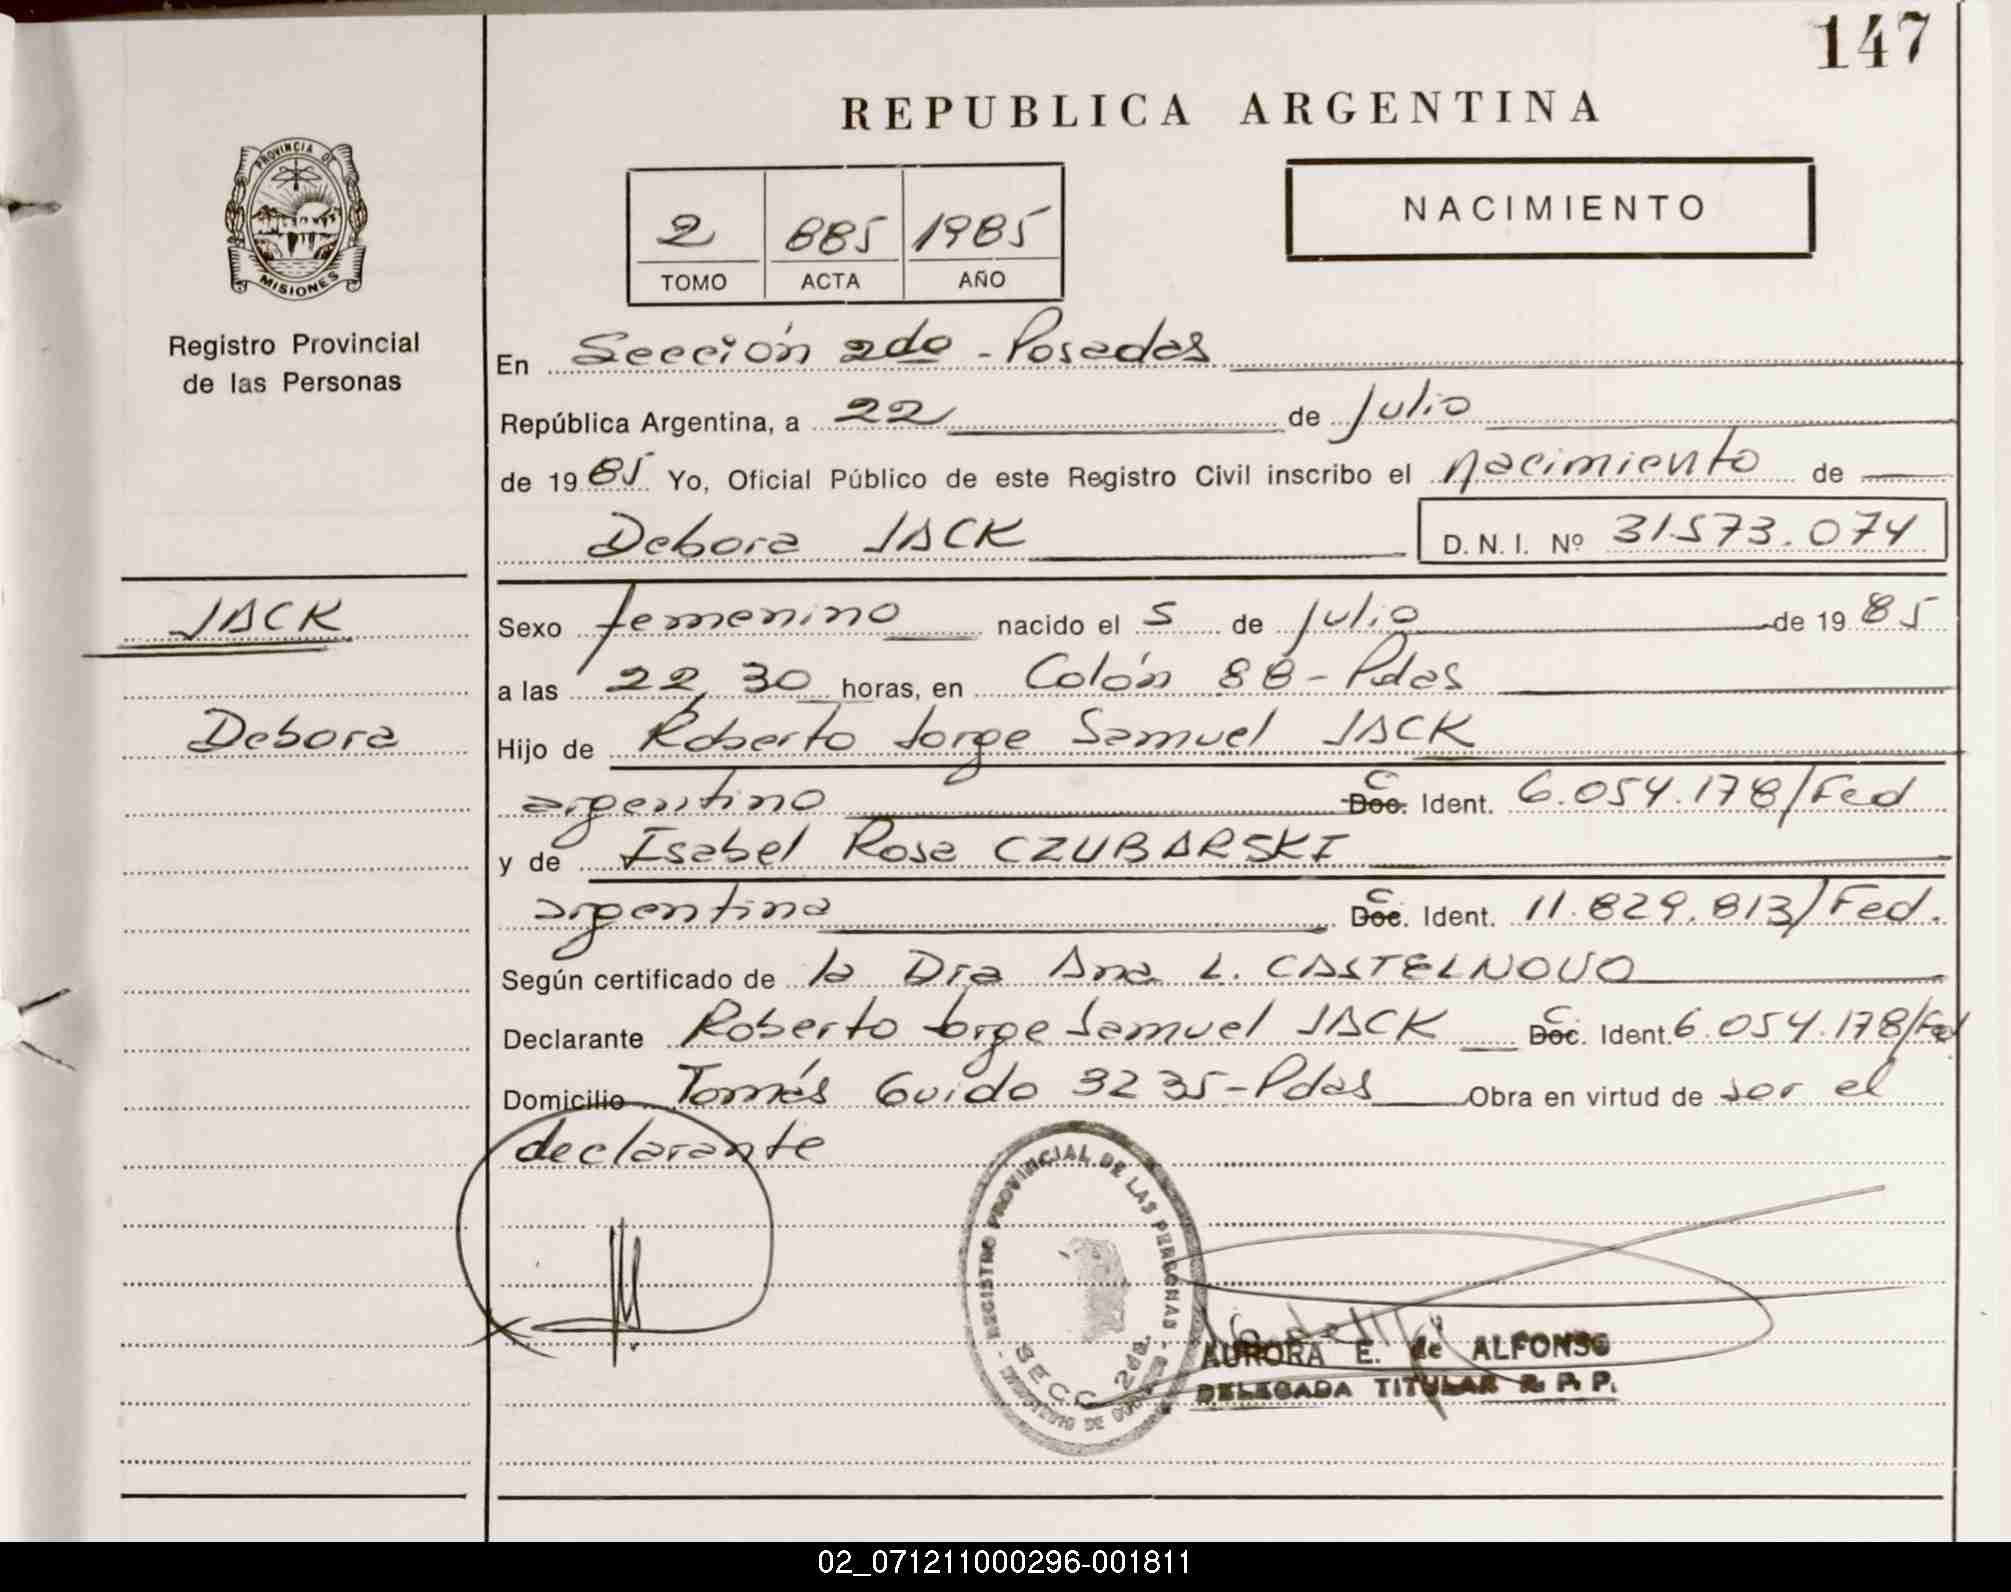 147
REPUBLICA ARGENTINA
PROVINCIA DE
MISIONES
Registro Provincial
de las Personas
2 885 1985
TOMO ACTA AÑO
NACIMIENTO
En Sección 2do - Posadas
República Argentina, a 22 de Julio
de 1985 Yo, Oficial Público de este Registro Civil inscribo el nacimiento de
Debora JACK D. N. I. Nº 31.573.074
JACK
Sexo femenino nacido el 5 de julio de 1985
a las 22,30 horas, en Colón 88 - Pdas
Debora
Hijo de Roberto Jorge Samuel JACK
argentino Doc. C Ident. 6.054.178/Fed
y de Isabel Rosa CZUBARSKI
argentina Doc. C Ident. 11.829.813/Fed.
Según certificado de la Dra Ana L. CASTELNOVO
Declarante Roberto Jorge Samuel JACK Doc. C Ident. 6.054.178/Fed
Domicilio Tomás Guido 3235 - Pdas Obra en virtud de ser el
declarante
- REGISTRO PROVINCIAL DE LAS PERSONAS -
SECC. 2da.
MINISTERIO DE GOBIERNO
AURORA E. de ALFONSO
DELEGADA TITULAR R. P. P.
02_071211000296-001811